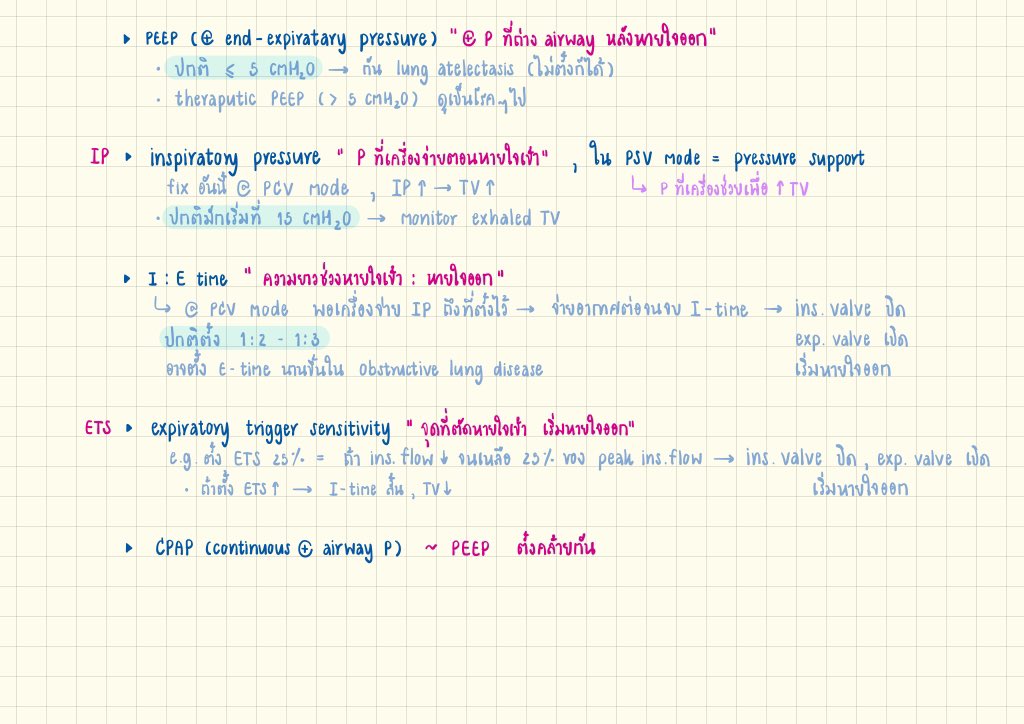 ▸ PEEP (⊕ end-expiratary pressure) "⊕ P ที่ถ่าง airway หลังหายใจออก"
· ปกติ ≤ 5 cmH₂O → กัน lung atelectasis (ไม่ตั้งก็ได้)
· theraputic PEEP (> 5 cmH₂O) ดูเป็นโรคๆไป
IP ▸ inspiratory pressure " P ที่เครื่องจ่ายตอนหายใจเข้า" , ใน PSV mode = pressure support
fix อันนี้ @ PCV mode , IP ↑ → TV ↑ ↳ P ที่เครื่องช่วยเพื่อ ↑ TV
· ปกติมักเริ่มที่ 15 cmH₂O → monitor exhaled TV
▸ I : E time " ความยาวช่วงหายใจเข้า : หายใจออก"
↳ @ PCV mode พอเครื่องจ่าย IP ถึงที่ตั้งไว้ → จ่ายอากาศต่อจนจบ I-time → ins. valve ปิด
ปกติตั้ง 1:2 - 1:3 exp. valve เปิด
อาจตั้ง E-time นานขึ้นใน obstructive lung disease เริ่มหายใจออก
ETS ▸ expiratory trigger sensitivity " จุดที่ตัดหายใจเข้า เริ่มหายใจออก"
e.g. ตั้ง ETS 25% = ถ้า ins.flow ↓ จนเหลือ 25% ของ peak ins.flow → ins. valve ปิด , exp. valve เปิด
· ถ้าตั้ง ETS ↑ → I-time สั้น , TV ↓ เริ่มหายใจออก
▸ CPAP (continuous ⊕ airway P) ~ PEEP ตั้งคล้ายกัน